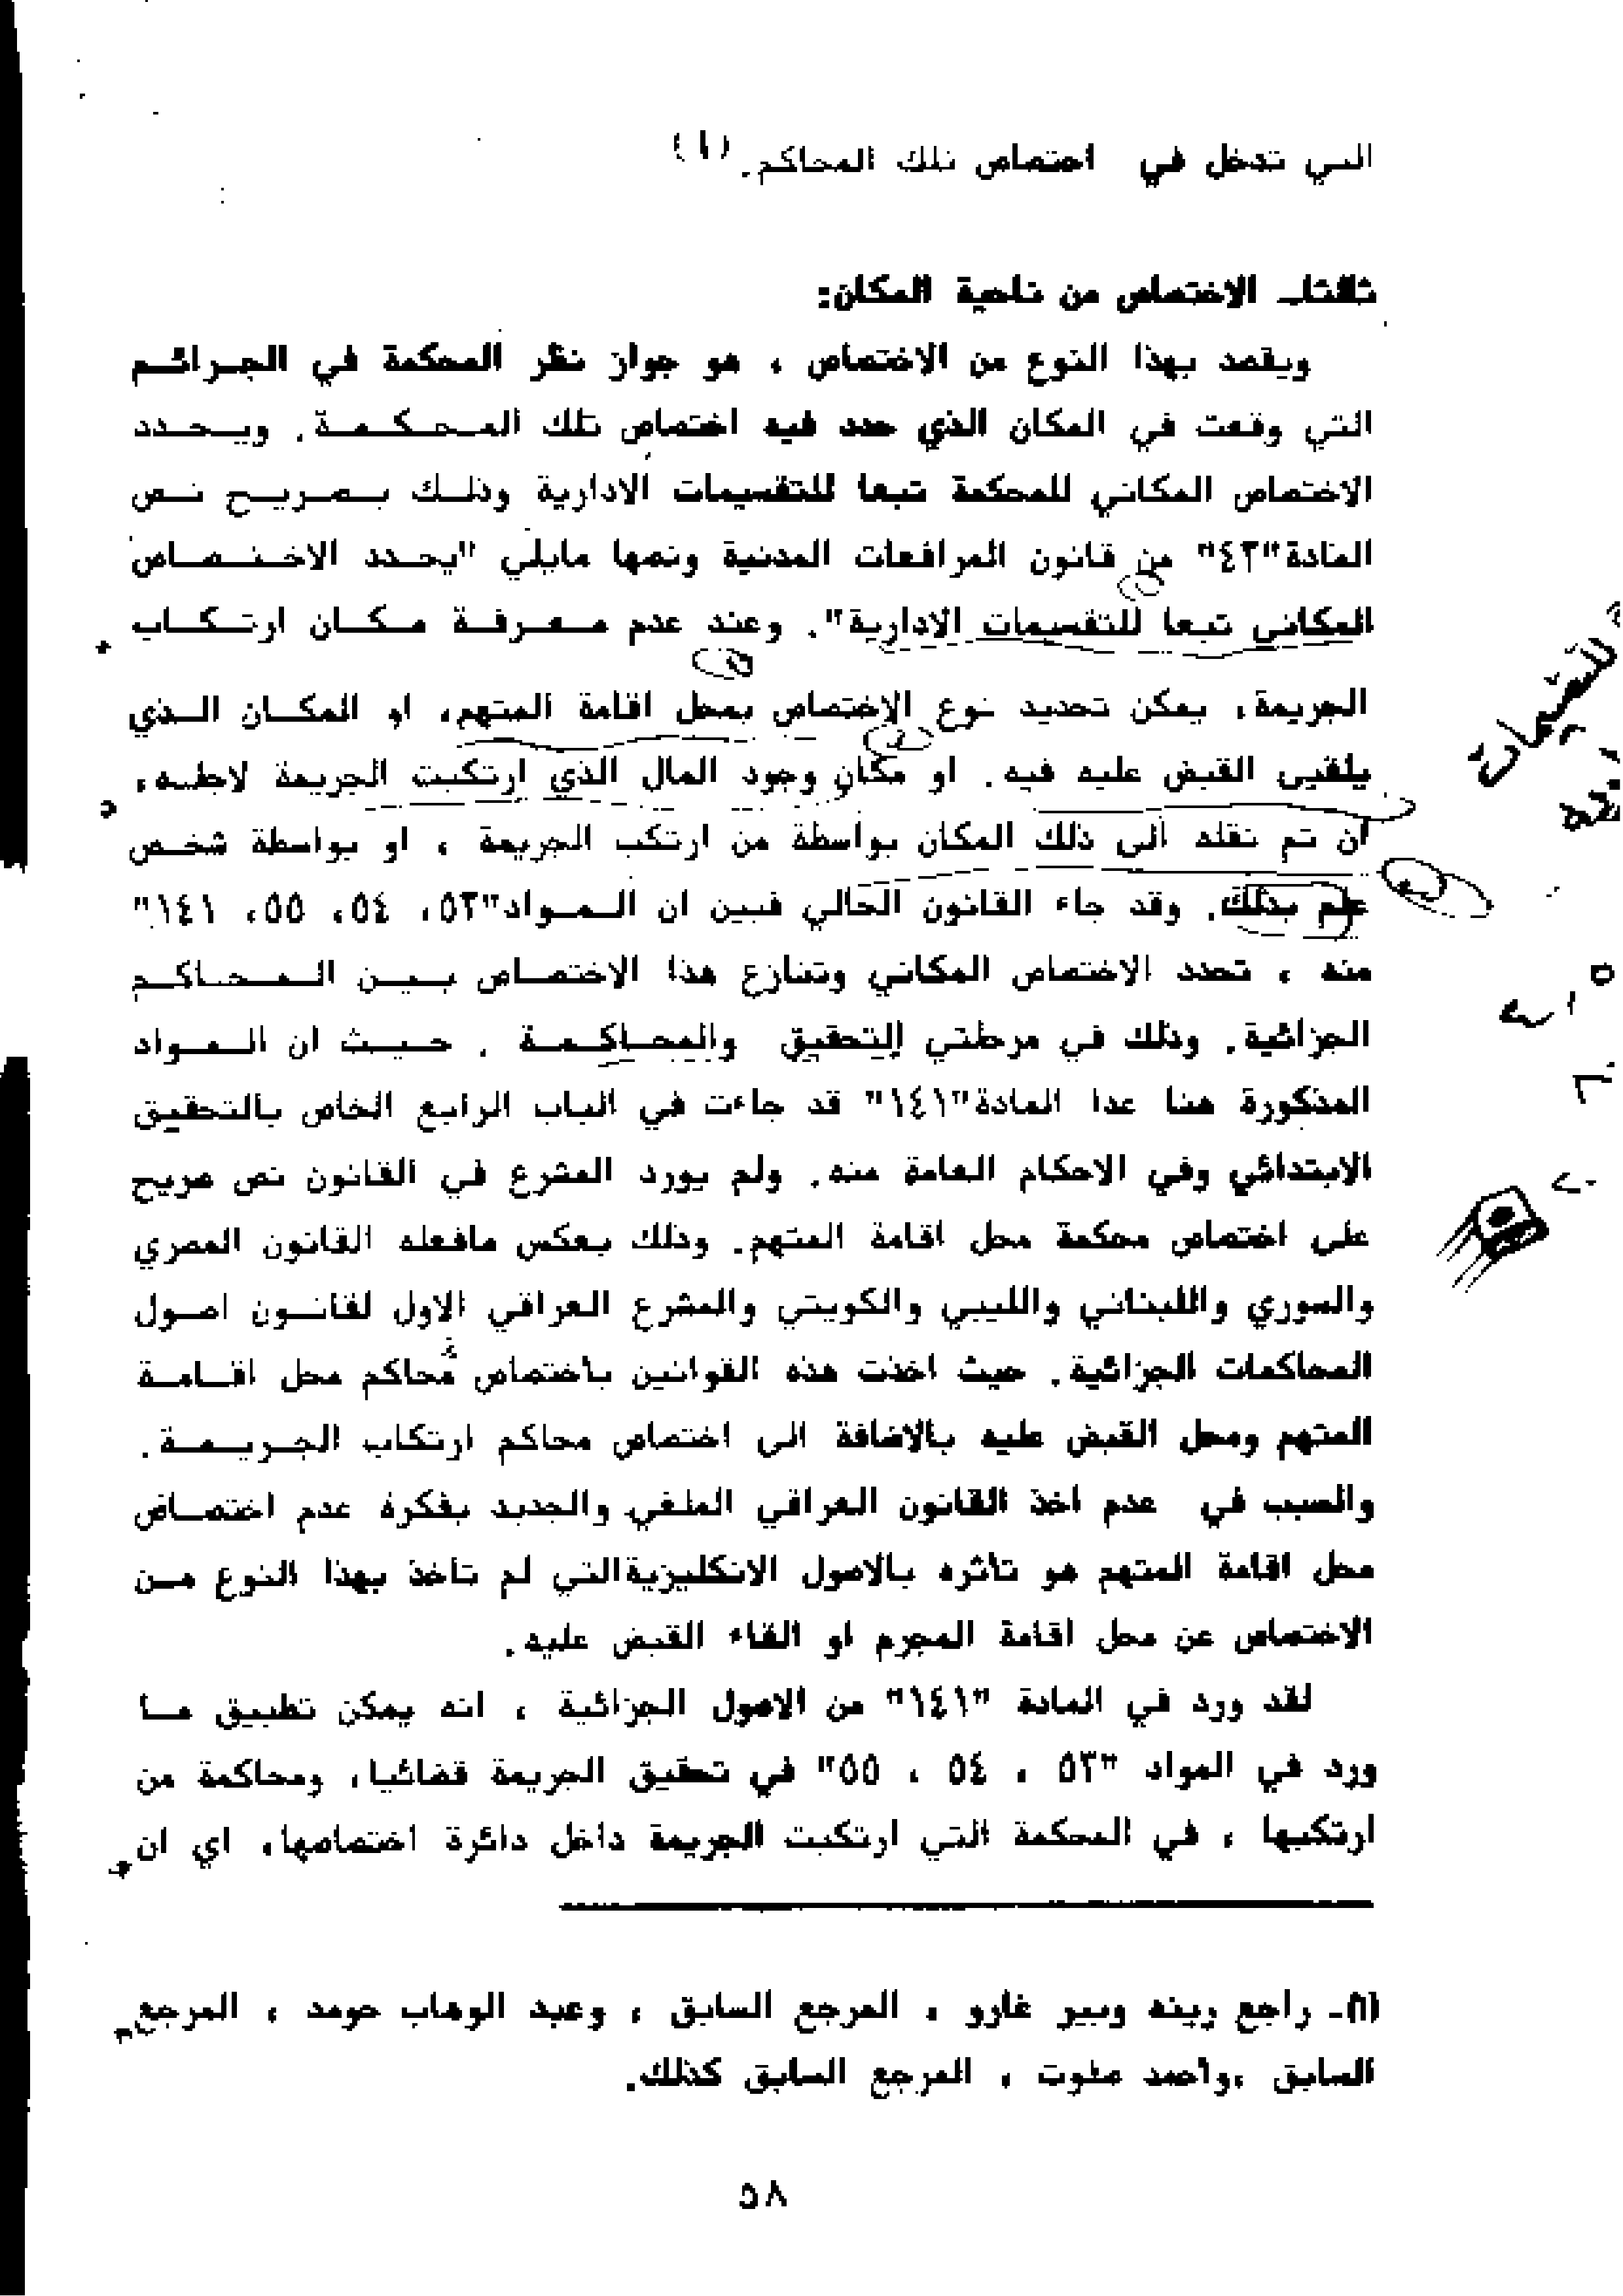 التي تدخل في اختصاص تلك المحاكم. (١)
ثالثاـ الاختصاص من ناحية المكان:
ويقصد بهذا النوع من الاختصاص ، هو جواز نظر المحكمة في الجـرائـم
التي وقعت في المكان الذي حدد فيه اختصاص تلك المـحـكـمـة. ويـحـدد
الاختصاص المكاني للمحكمة تبعا للتقسيمات الادارية وذلـك بـصـريـح نـص
المادة"٤٣" من قانون المرافعات المدنية ونصها مايلي "يحـدد الاخـتـصـاص
المكاني تبعا للتقسيمات الادارية". وعند عدم مـعـرفـة مـكـان ارتـكـاب
الجريمة، يمكن تحديد نوع الاختصاص بمحل اقامة المتهم، او المكـان الـذي
يلقى القبض عليه فيه. او مكان وجود المال الذي ارتكبت الجريمة لاجلـه،
ان تم نقله الى ذلك المكان بواسطة من ارتكب الجريمة ، او بواسطة شخـص
علم بذلك. وقد جاء القانون الحالي فبين ان الـمـواد"٥٣، ٥٤، ٥٥، ١٤١"
منه ، تحدد الاختصاص المكاني وتنازع هذا الاختصـاص بـيـن الـمـحـاكـم
الجزائية. وذلك في مرحلتي التحقيق والمحـاكـمـة . حـيـث ان الـمـواد
المذكورة هنا عدا المادة"١٤١" قد جاءت في الباب الرابع الخاص بالتحقيق
الابتدائي وفي الاحكام العامة منه. ولم يورد المشرع في القانون نص صريح
على اختصاص محكمة محل اقامة المتهم. وذلك بعكس مافعله القانون المصري
والسوري واللبناني والليبي والكويتي والمشرع العراقي الاول لقانـون اصـول
المحاكمات الجزائية. حيث اخذت هذه القوانين باختصاص محاكم محل اقـامـة
المتهم ومحل القبض عليه بالاضافة الى اختصاص محاكم ارتكاب الجـريـمـة.
والسبب في عدم اخذ القانون العراقي الملغي والجديد بفكرة عدم اختصـاص
محل اقامة المتهم هو تاثره بالاصول الانكليزية التي لم تاخذ بهذا النوع مـن
الاختصاص عن محل اقامة المجرم او القاء القبض عليه.
لقد ورد في المادة "١٤١" من الاصول الجزائية ، انه يمكن تطبيق مـا
ورد في المواد "٥٣ ، ٥٤ ، ٥٥" في تحقيق الجريمة قضائيا، ومحاكمة من
ارتكبها ، في المحكمة التي ارتكبت الجريمة داخل دائرة اختصاصها، اي ان
(١ـ راجع رينه وبير غارو ، المرجع السابق ، وعبد الوهاب حومد ، المرجع
السابق ،واحمد صفوت ، المرجع السابق كذلك.
٥٨
للتقسيمات